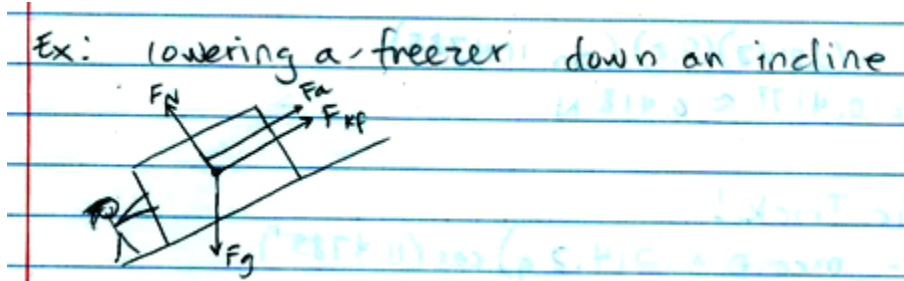 Ex: lowering a freezer down an incline
FN
Fa
Fkf
Fg